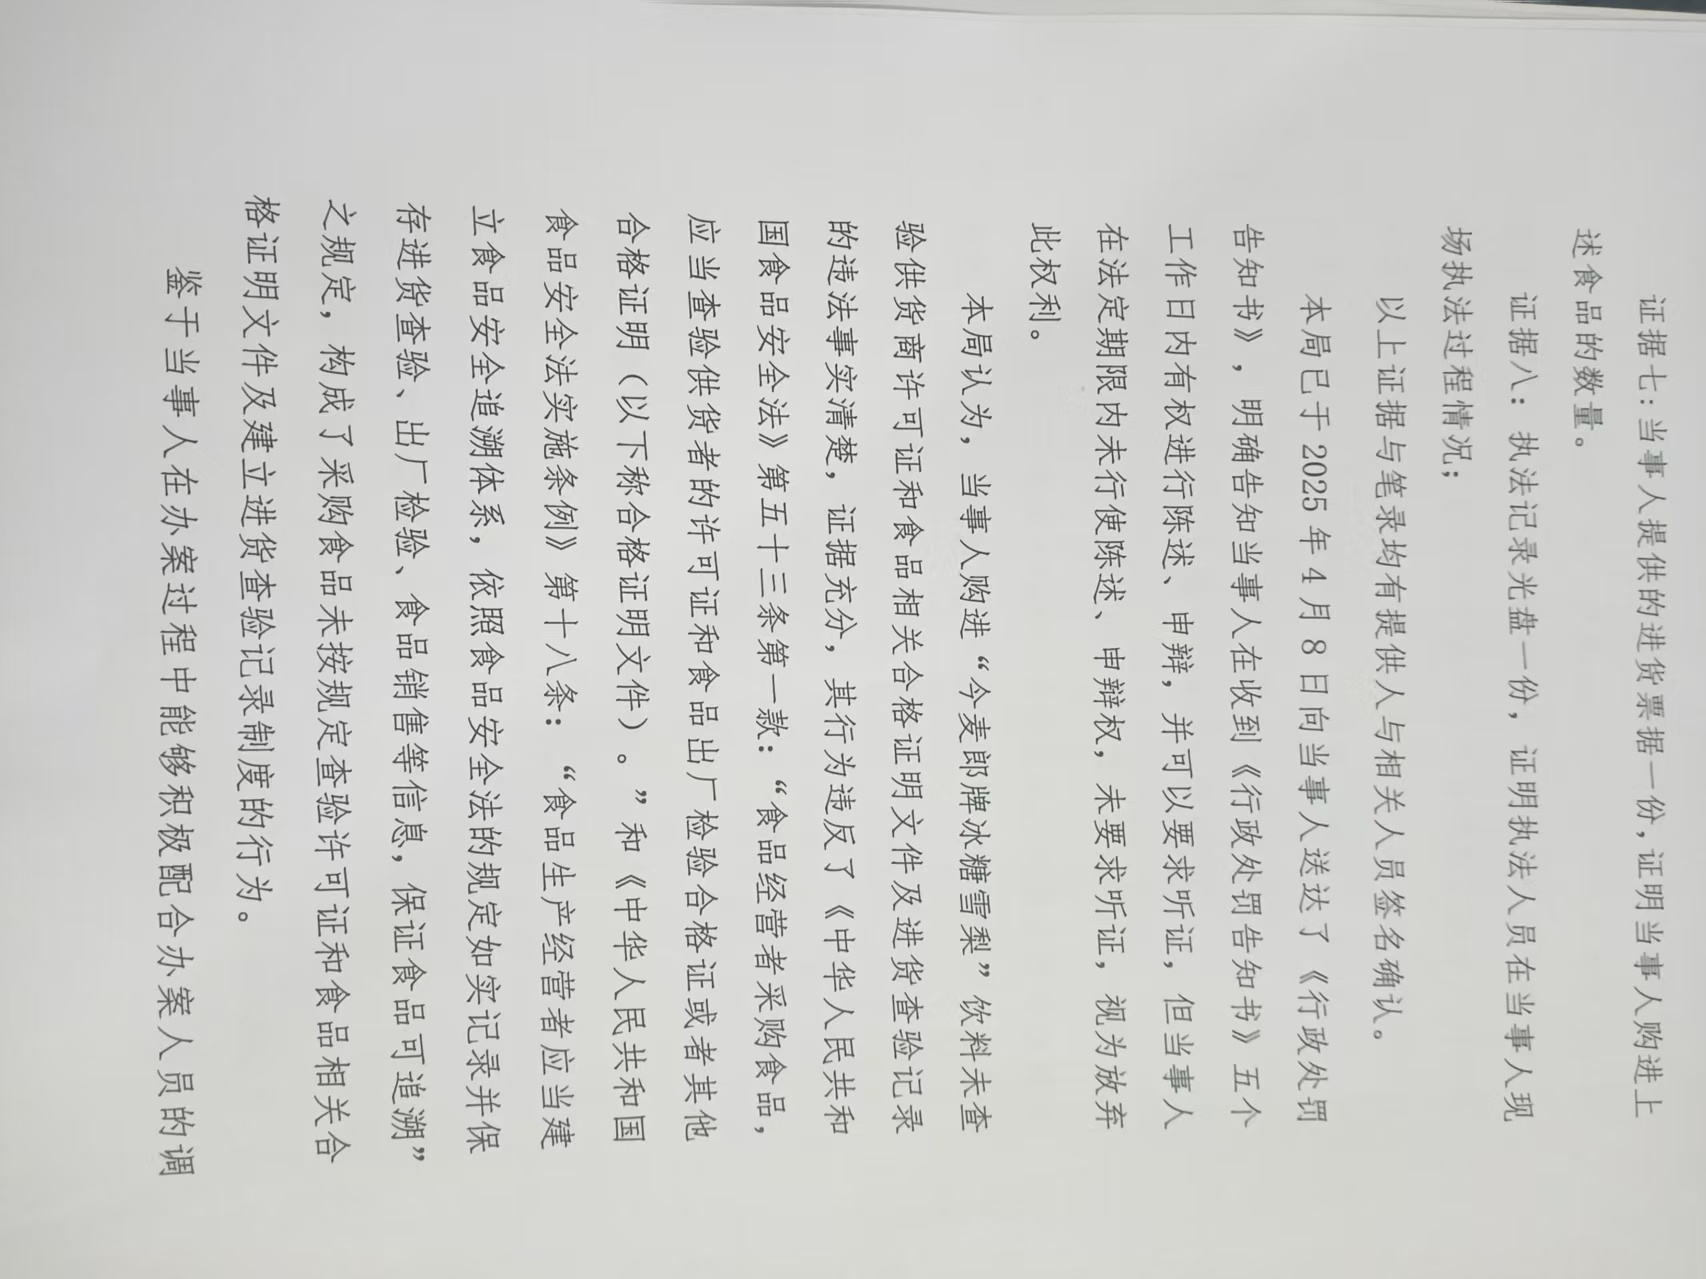 证据七:当事人提供的进货票据一份,证明当事人购进上
述食品的数量。
证据八：执法记录光盘一份，证明执法人员在当事人现
场执法过程情况；
以上证据与笔录均有提供人与相关人员签名确认。
本局已于 2025 年 4 月 8 日向当事人送达了《行政处罚
告知书》，明确告知当事人在收到《行政处罚告知书》五个
工作日内有权进行陈述、申辩，并可以要求听证，但当事人
在法定期限内未行使陈述、申辩权，未要求听证，视为放弃
此权利。
本局认为，当事人购进“今麦郎牌冰糖雪梨”饮料未查
验供货商许可证和食品相关合格证明文件及进货查验记录
的违法事实清楚，证据充分，其行为违反了《中华人民共和
国食品安全法》第五十三条第一款：“食品经营者采购食品，
应当查验供货者的许可证和食品出厂检验合格证或者其他
合格证明（以下称合格证明文件）。”和《中华人民共和国
食品安全法实施条例》第十八条：“食品生产经营者应当建
立食品安全追溯体系，依照食品安全法的规定如实记录并保
存进货查验、出厂检验、食品销售等信息，保证食品可追溯”
之规定，构成了采购食品未按规定查验许可证和食品相关合
格证明文件及建立进货查验记录制度的行为。
鉴于当事人在办案过程中能够积极配合办案人员的调